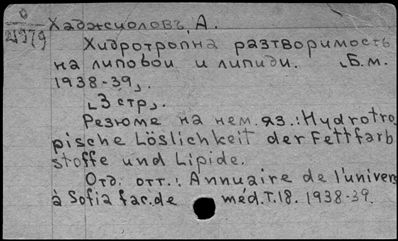 0
21979
Хаджиоловъ, А.
Хидротропна разтворимость
на липовои и липиди. [Б.м.
1938-39].
[3 стр].
Резюме на нем. яз.: Hydrotro
pische Löslichkeit der Fettfarb
stoffe und Lipide.
Отд. отт.: Annuaire de l'univers
à Sofia fac. de méd. T. 18. 1938-39.